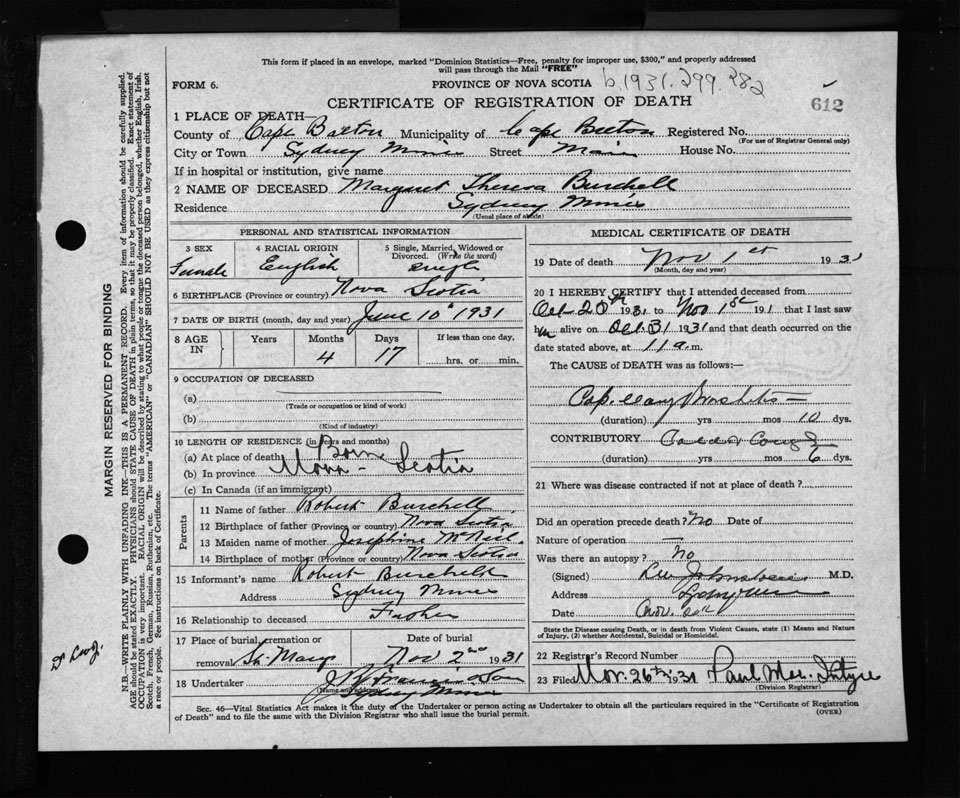 This form if placed in an envelope, marked "Dominion Statistics—Free, penalty for improper use, $300," and properly addressed
will pass through the Mail "FREE"
FORM 6.
PROVINCE OF NOVA SCOTIA
b.1931.299.282
CERTIFICATE OF REGISTRATION OF DEATH
612
1 PLACE OF DEATH—
County of Cape Breton Municipality of Cape Breton Registered No.
(For use of Registrar General only)
City or Town Sydney Mines Street Main House No.
If in hospital or institution, give name
2 NAME OF DECEASED Margaret Theresa Burchell
Residence Sydney Mines
(Usual place of abode)
PERSONAL AND STATISTICAL INFORMATION
3 SEX
Female
4 RACIAL ORIGIN
English
5 Single, Married, Widowed or
Divorced. (Write the word)
single
6 BIRTHPLACE (Province or country) Nova Scotia
7 DATE OF BIRTH (month, day and year) June 10th 1931
8 AGE
IN
Years
Months
4
Days
17
If less than one day,
hrs. or min.
9 OCCUPATION OF DECEASED
(a)
(Trade or occupation or kind of work)
(b)
(Kind of industry)
10 LENGTH OF RESIDENCE (in years and months)
(a) At place of death Born
(b) In province Nova - Scotia
(c) In Canada (if an immigrant)
Parents
11 Name of father Robert Burchell
12 Birthplace of father (Province or country) Nova Scotia
13 Maiden name of mother Josephine McNeil.
14 Birthplace of mother (Province or country) Nova Scotia
15 Informant's name Robert Burchell
Address Sydney Mines
16 Relationship to deceased Father
17 Place of burial, cremation or
removal St. Marys
Date of burial
Nov 2nd 1931
18 Undertaker
(Name and address)
Sydney Mines
MEDICAL CERTIFICATE OF DEATH
19 Date of death Nov 1st 1931
(Month, day and year)
20 I HEREBY CERTIFY that I attended deceased from
Oct 20th 1931 to Nov 1st 191 , that I last saw
h alive on Oct 31 1931 and that death occurred on the
date stated above, at 11 a. m.
The CAUSE of DEATH was as follows:—
Capillary Bronchitis —
(duration) yrs mos 10 dys.
CONTRIBUTORY
(duration) yrs mos 6 dys.
21 Where was disease contracted if not at place of death?
Did an operation precede death? No Date of
Nature of operation —
Was there an autopsy? No
(Signed) M.D.
Address
Date Nov.
State the Disease causing Death, or in death from Violent Causes, state (1) Means and
Nature of Injury, (2) whether Accidental, Suicidal or Homicidal.
22 Registrar's Record Number
23 Filed Nov. 26th 1931 Paul Mac Intyre
(Division Registrar)
Sec. 46—Vital Statistics Act makes it the duty of the Undertaker or person acting as Undertaker to obtain all the particulars required in the "Certificate of Registration
of Death" and to file the same with the Division Registrar who shall issue the burial permit.
(OVER)
MARGIN RESERVED FOR BINDING
N.B.—WRITE PLAINLY WITH UNFADING INK—THIS IS A PERMANENT RECORD. Every item of information should be carefully supplied.
AGE should be stated EXACTLY. PHYSICIANS should STATE CAUSE OF DEATH in plain terms, so that it may be properly classified. Exact statement of
OCCUPATION is very important. RACIAL ORIGIN will be described by stating to what people or tongue the deceased person belonged, whether English, Irish,
Scotch, French, German, Russian, Ruthenian, etc. The terms "AMERICAN" or "CANADIAN" SHOULD NOT BE USED as they express citizenship but not
a race or people. See instructions on back of Certificate.